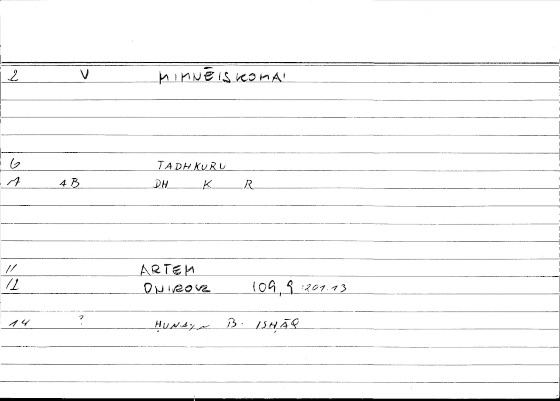 2 V MIMNĒISKOMAI
6 TADHKURU
A 4B DH K R
11 ARTEM
12 ONIROKR 109,9 :201.13
14 ? ḤUNAYN B. ISḤĀQ